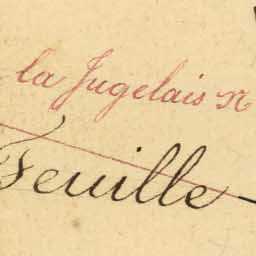 la Jugelais
Feuille